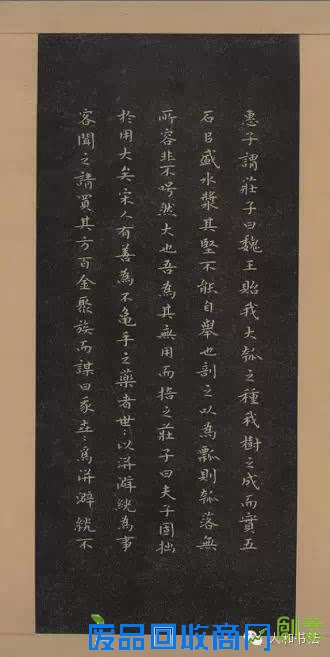 惠子謂莊子曰魏王貽我大瓠之種我樹之成而實五
石以盛水漿其堅不能自舉也剖之以為瓢則瓠落無
所容非不呺然大也吾為其無用而掊之莊子曰夫子固拙
於用大矣宋人有善為不龜手之藥者世〻以洴澼絖為事
客聞之請買其方百金聚族而謀曰我世〻為洴澼絖不
創荣
人和书法
废品回收商网